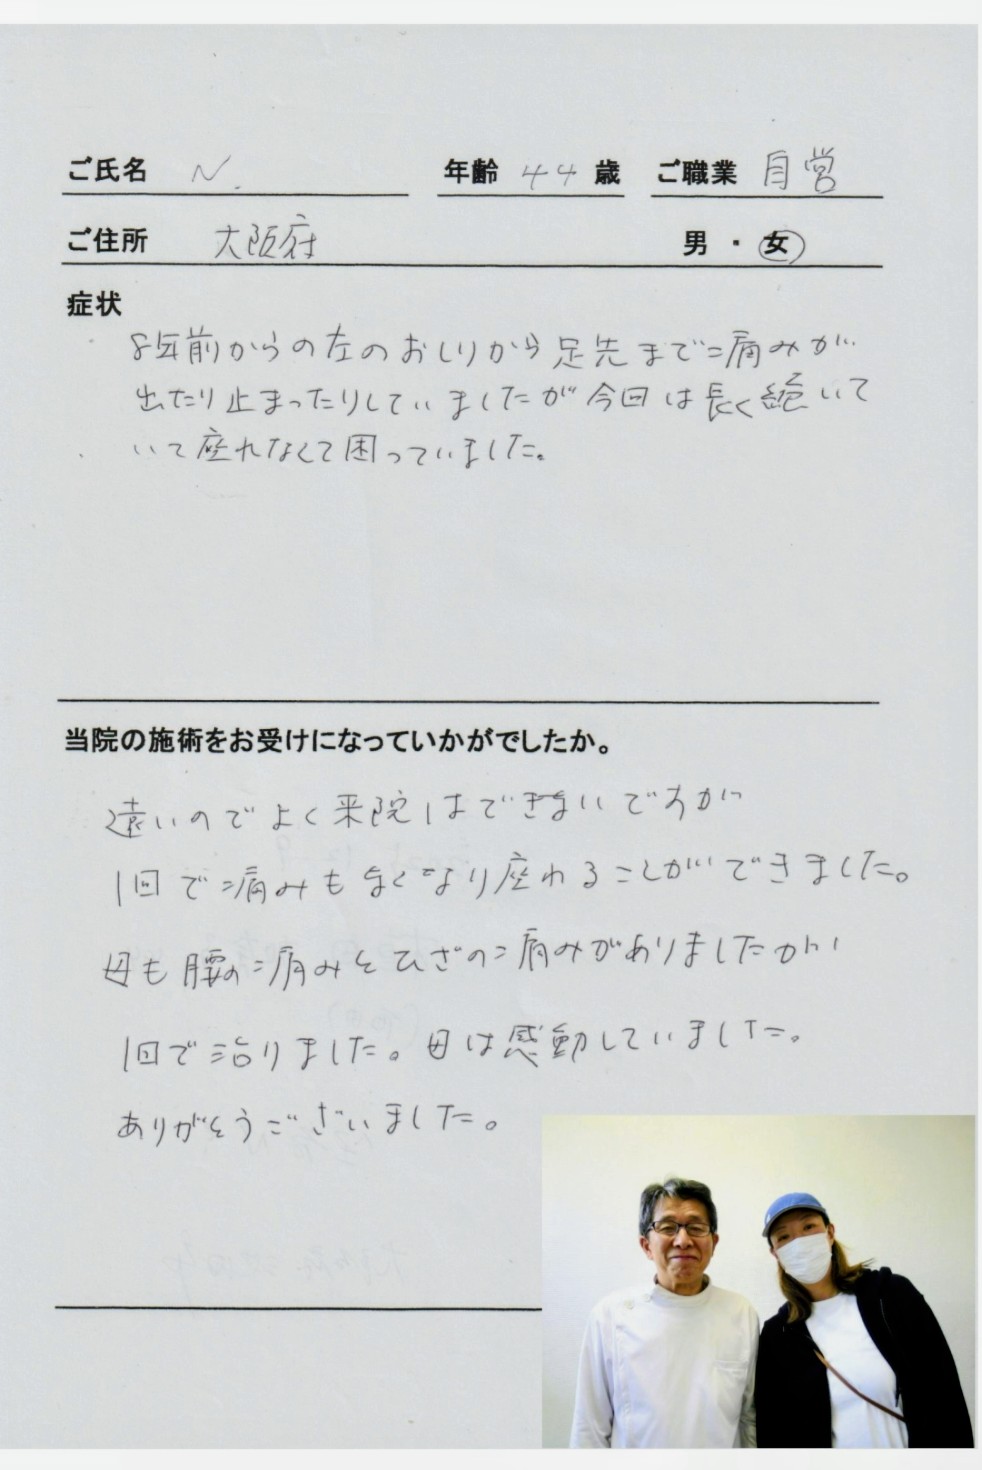 ご氏名 N. 年齢 44 歳 ご職業 自営
ご住所 大阪府 男・女
症状
8年前からの左のおしりから足先まで痛みが
出たり止まったりしていましたが今回は長く続いて
いて座れなくて困っていました。
当院の施術をお受けになっていかがでしたか。
遠いのでよく来院はできないですが
1回で痛みもなくなり座わることができました。
母も腰の痛みとひざの痛みがありましたが
1回で治りました。母は感動していました。
ありがとうございました。